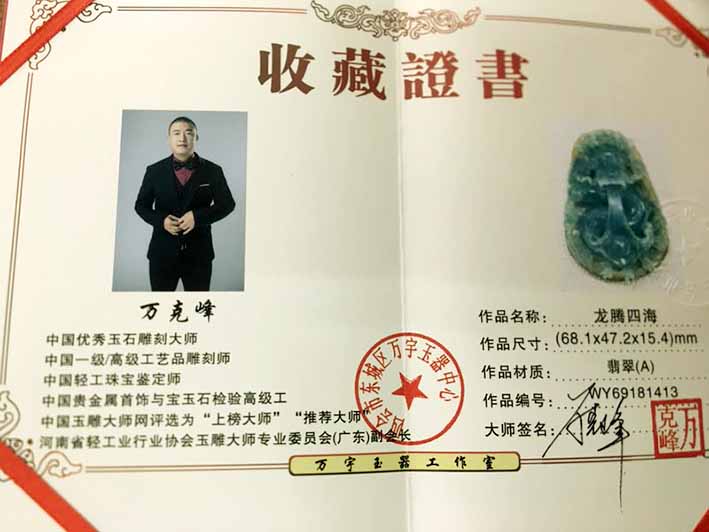 收藏證書
万克峰
中国优秀玉石雕刻大师
中国一级/高级工艺品雕刻师
中国轻工珠宝鉴定师
中国贵金属首饰与宝玉石检验高级工
中国玉雕大师网评选为“上榜大师”“推荐大师”
河南省轻工业行业协会玉雕大师专业委员会(广东)副会长
作品名称: 龙腾四海
作品尺寸: (68.1x47.2x15.4)mm
作品材质: 翡翠(A)
作品编号: WY69181413
大师签名:
万克峰
会市东城区万宇玉器中心
万宇玉器工作室